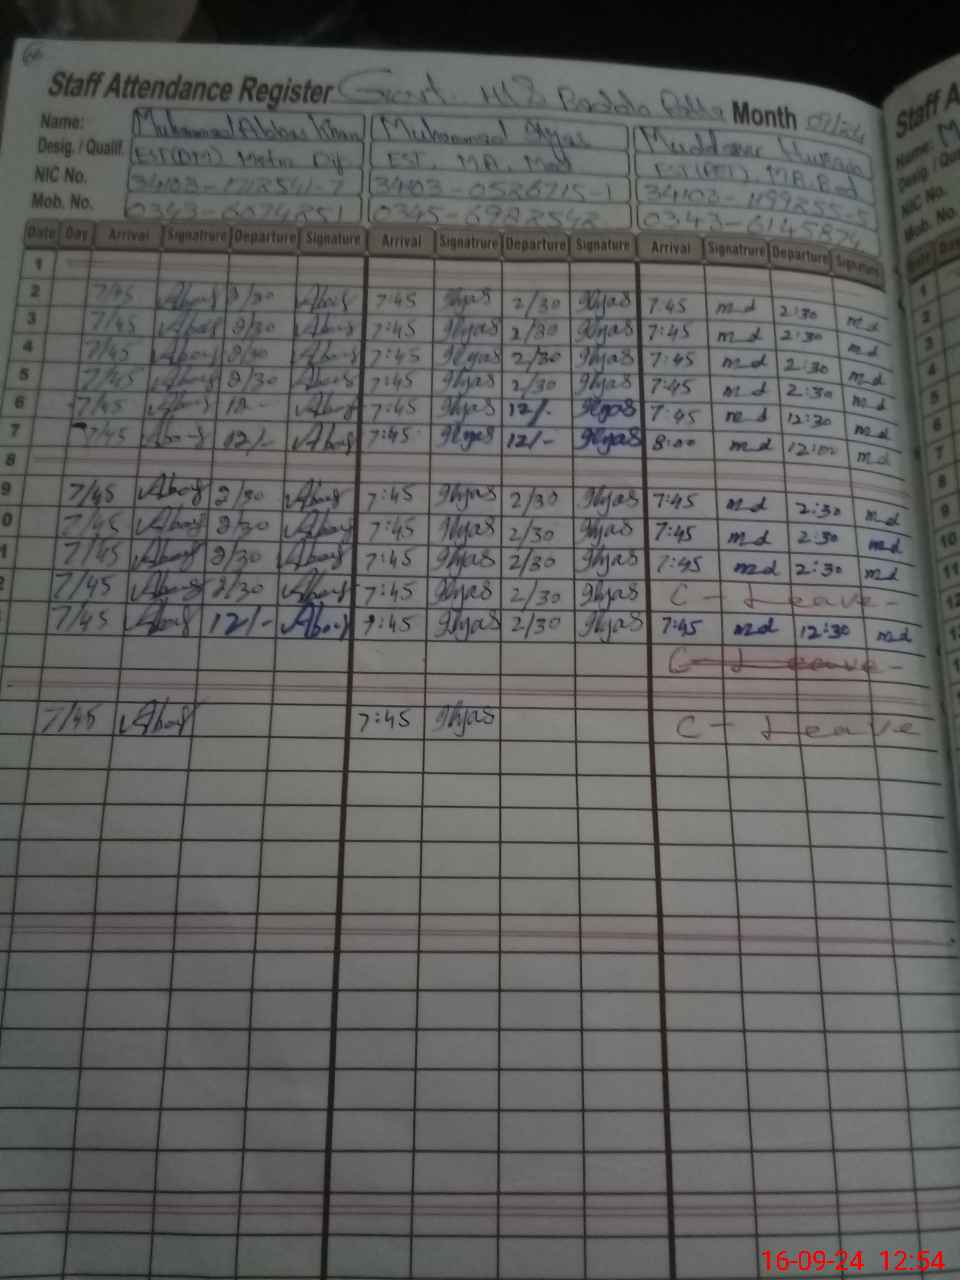 Staff Attendance Register Govt. Month 09/24
Staff A
Name: Muhammad Abbas Khan Muhammad Ilyas Muddasar Hussain
Desig. / Qualif. EST(DM) EST, M.A,
NIC No. 34103-0526715-1
Mob. No.
Date Day Arrival Signatrure Departure Signature Arrival Signatrure Departure Signature Arrival Signatrure Departure Signature
1
2 7/45 Abbas 2/30 Abbas 7:45 Ilyas 2/30 Ilyas 7:45 md 2:30 md
3 7/45 Abbas 2/30 Abbas 7:45 Ilyas 2/30 Ilyas 7:45 md 2:30 md
4 7/45 Abbas 2/30 Abbas 7:45 Ilyas 2/30 Ilyas 7:45 md 2:30 md
5 7/45 Abbas 2/30 Abbas 7:45 Ilyas 2/30 Ilyas 7:45 md 2:30 md
6 7/45 Abbas 12- Abbas 7:45 Ilyas 12/- Ilyas 7:45 md 12:30 md
7 7/45 Abbas 12/- Abbas 7:45 Ilyas 12/- Ilyas 8:00 md 12:00 md
8
9 7/45 Abbas 2/30 Abbas 7:45 Ilyas 2/30 Ilyas 7:45 md 2:30 md
0 7/45 Abbas 2/30 Abbas 7:45 Ilyas 2/30 Ilyas 7:45 md 2:30 md
1 7/45 Abbas 2/30 Abbas 7:45 Ilyas 2/30 Ilyas 7:45 md 2:30 md
2 7/45 Abbas 2/30 Abbas 7:45 Ilyas 2/30 Ilyas C - Leave -
7/45 Abbas 12/- Abbas 7:45 Ilyas 2/30 Ilyas 7:45 md 12:30 md
C - Leave -
7/45 Abbas 7:45 Ilyas C - Leave
16-09-24 12:54